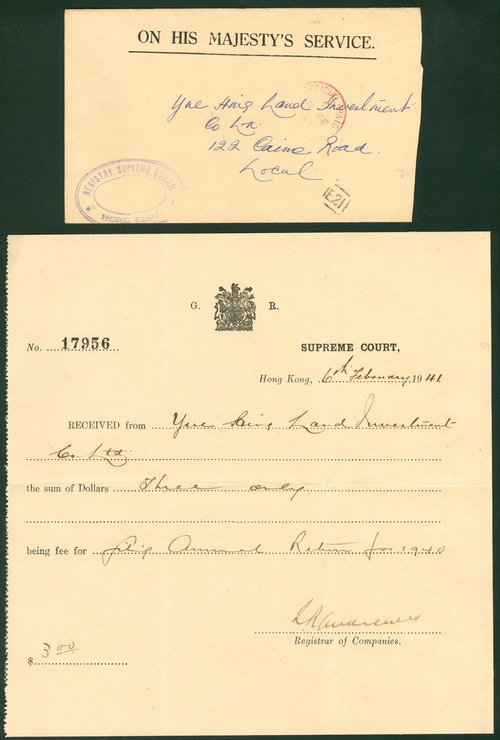 ON HIS MAJESTY'S SERVICE.
OFFICIAL PAID
Yue Hing Land Investment
Co Ld.
122 Caine Road.
Local
REGISTRY SUPREME COURT
HONG KONG
E21
G. R.
No. 17956
SUPREME COURT,
Hong Kong, 6th February 1941
RECEIVED from Yue Hing Land Investment
Co. Ltd.
the sum of Dollars Three only
being fee for filing Annual Return for 1940.
Registrar of Companies.
$ 3.00